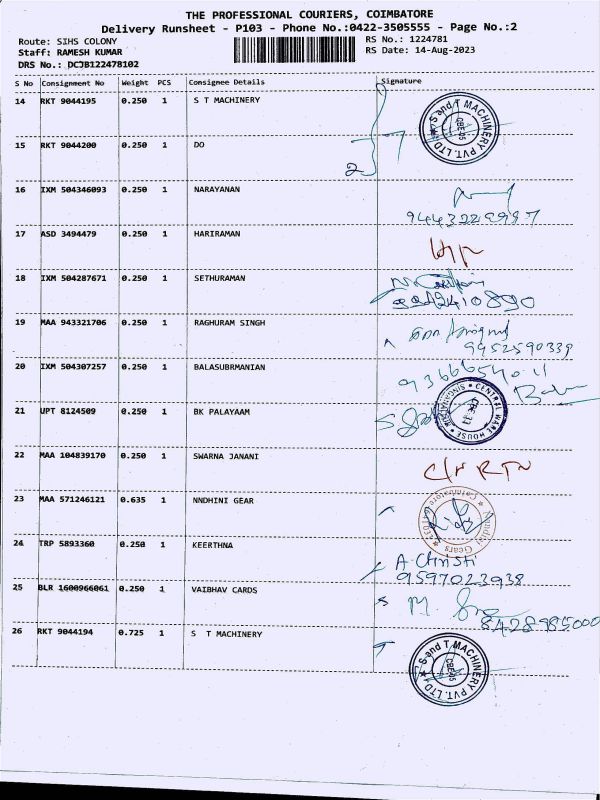 THE PROFESSIONAL COURIERS, COIMBATORE
Delivery Runsheet - P103 - Phone No.:0422-3505555 - Page No.:2
Route: SIHS COLONY RS No.: 1224781
Staff: RAMESH KUMAR RS Date: 14-Aug-2023
DRS No.: DCJB122478102
S No Consignment No Weight PCS Consignee Details Signature
14 RKT 9044195 0.250 1 S T MACHINERY
S and T MACHINERY PVT. LTD
CBE-45
15 RKT 9044200 0.250 1 DO
2
16 IXM 504346093 0.250 1 NARAYANAN
17 ASD 3494479 0.250 1 HARIRAMAN
18 IXM 504287671 0.250 1 SETHURAMAN
19 MAA 943321706 0.250 1 RAGHURAM SINGH
9952590339
20 IXM 504307257 0.250 1 BALASUBRMANIAN
21 UPT 8124509 0.250 1 BK PALAYAAM
CENTRAL WARE HOUSE
22 MAA 104839170 0.250 1 SWARNA JANANI
C/N RTN
23 MAA 571246121 0.635 1 NNDHINI GEAR
Gears
24 TRP 5893360 0.250 1 KEERTHNA
A. Christi
9597023938
25 BLR 1600966061 0.250 1 VAIBHAV CARDS
M.
8428985000
26 RKT 9044194 0.725 1 S T MACHINERY
S and T MACHINERY PVT. LTD
CBE-45